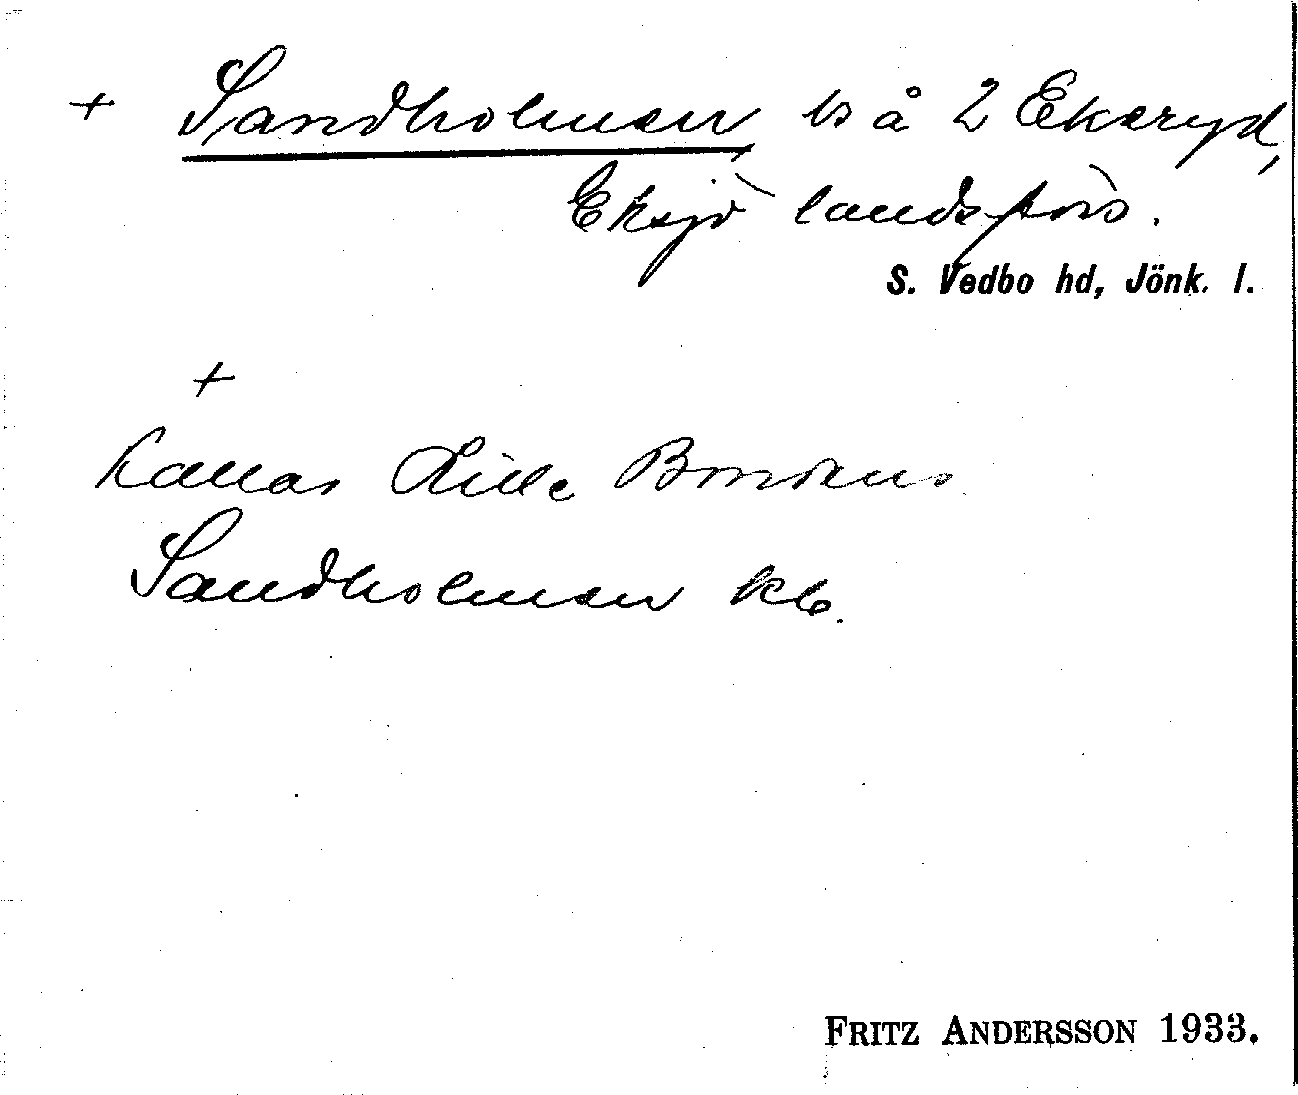 + Sandholmen ts å 2 Ekeryd,
Eksjö landsförs.
S. Vedbo hd, Jönk. l.
+
Kallas Lille
Sandholmen kb.
FRITZ ANDERSSON 1933.